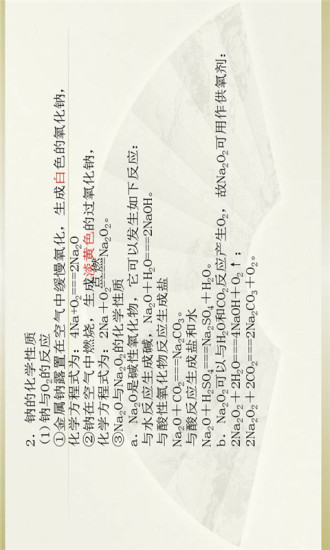 2．钠的化学性质
(1)钠与O₂的反应
①金属钠露置在空气中缓慢氧化，生成白色的氧化钠，
化学方程式为：4Na+O₂===2Na₂O
②钠在空气中燃烧，生成淡黄色的过氧化钠，
化学方程式为：2Na＋O₂点燃Na₂O₂。
③Na₂O与Na₂O₂的化学性质
a．Na₂O是碱性氧化物，它可以发生如下反应：
与水反应生成碱，Na₂O＋H₂O===2NaOH。
与酸性氧化物反应生成盐
Na₂O＋CO₂===Na₂CO₃。
与酸反应生成盐和水
Na₂O＋H₂SO₄===Na₂SO₄＋H₂O。
b．Na₂O₂可以与H₂O和CO₂反应产生O₂，故Na₂O₂可用作供氧剂：
2Na₂O₂＋2H₂O===4NaOH＋O₂↑；
2Na₂O₂＋2CO₂===2Na₂CO₃＋O₂。